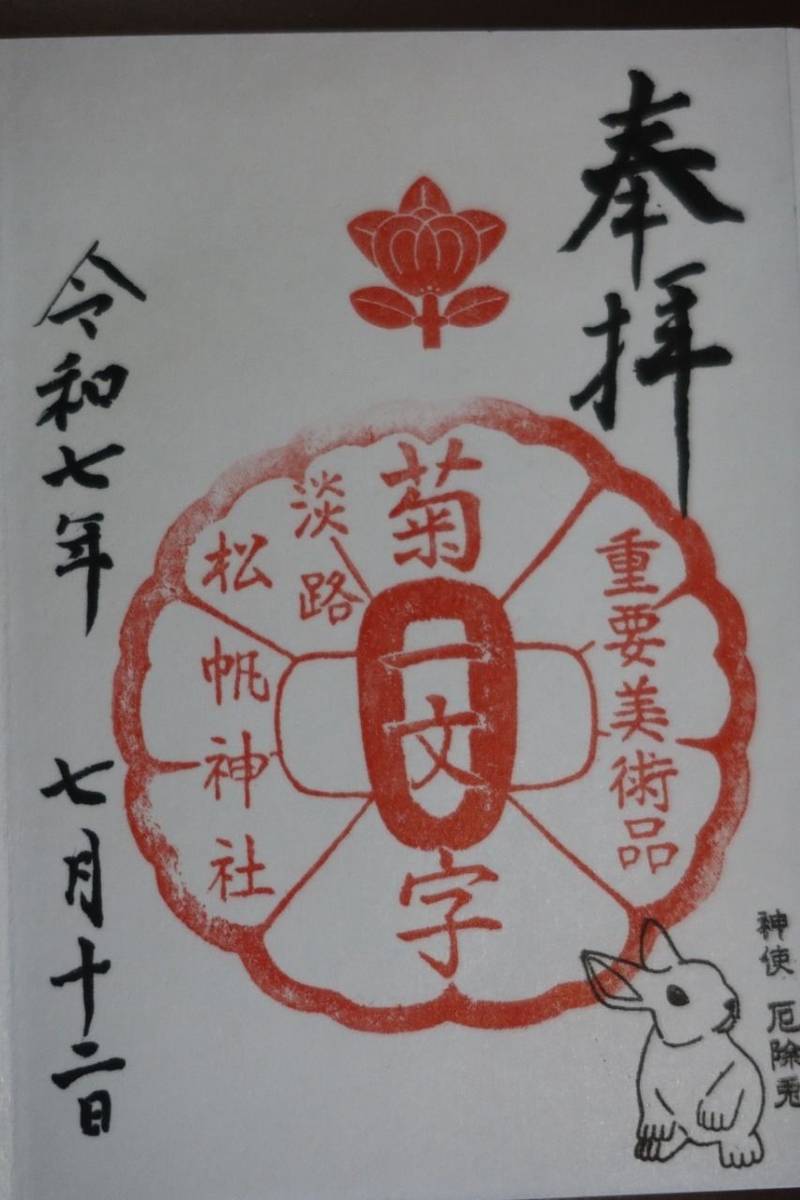 奉拝
重要美術品
菊一文字
淡路
松帆神社
令和七年 七月十二日
神使 厄除兎